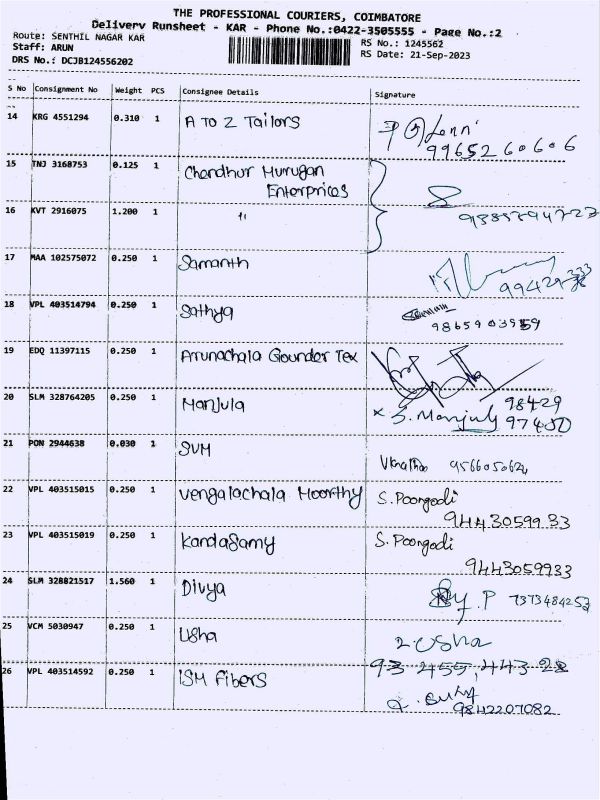 THE PROFESSIONAL COURIERS, COIMBATORE
Delivery Runsheet - KAR - Phone No.:0422-3505555 - Page No.:2
Route: SENTHIL NAGAR KAR RS No.: 1245562
Staff: ARUN RS Date: 21-Sep-2023
DRS No.: DCJB124556202
S No Consignment No Weight PCS Consignee Details Signature
14 KRG 4551294 0.310 1 A TO Z Tailors
9965260606
15 TNJ 3168753 0.125 1 Chendhur Murugan
Enterprices
16 KVT 2916075 1.200 1 "
17 MAA 102575072 0.250 1 Samanth
18 VPL 403514794 0.250 1 Sathya
9865903959
19 EDQ 11397115 0.250 1 Arunachala Gounder Tex
20 SLM 328764205 0.250 1 Manjula 98429
x S. Manjula 97480
21 PON 2944638 0.030 1 SVM
22 VPL 403515015 0.250 1 Vengalachala Moorthy S. Poongodi
9443059933
23 VPL 403515019 0.250 1 Kandasamy S. Poongodi
9443059933
24 SLM 328821517 1.560 1 Divya P 7373484253
25 VCM 5030947 0.250 1 Usha Usha
93 455,443 28
26 VPL 403514592 0.250 1 ISM Fibers
9842207082